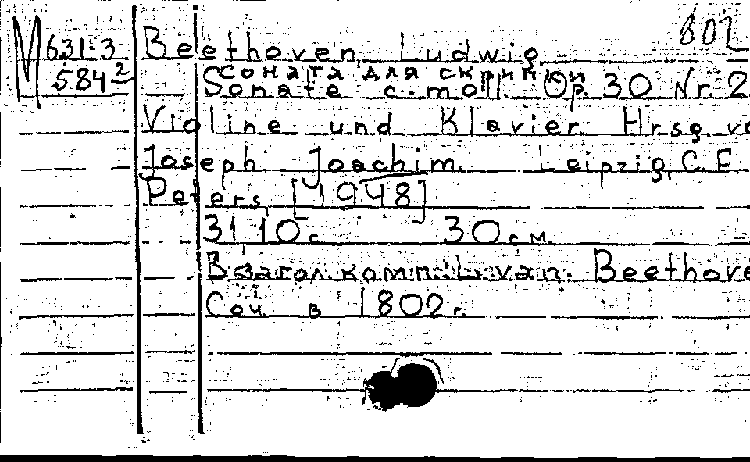 802
M 631-3 Beethoven Ludwig
584² Соната для скрипки
Sonate c-moll Op. 30 Nr. 2
Violine und Klavier Hrsg. vo
Joseph Joachim. Leipzig, C. F.
Peters, [1948]
31, 10 с. 30 см.
В загол. комп.: L. van. Beethove
Соч. в 1802 г.